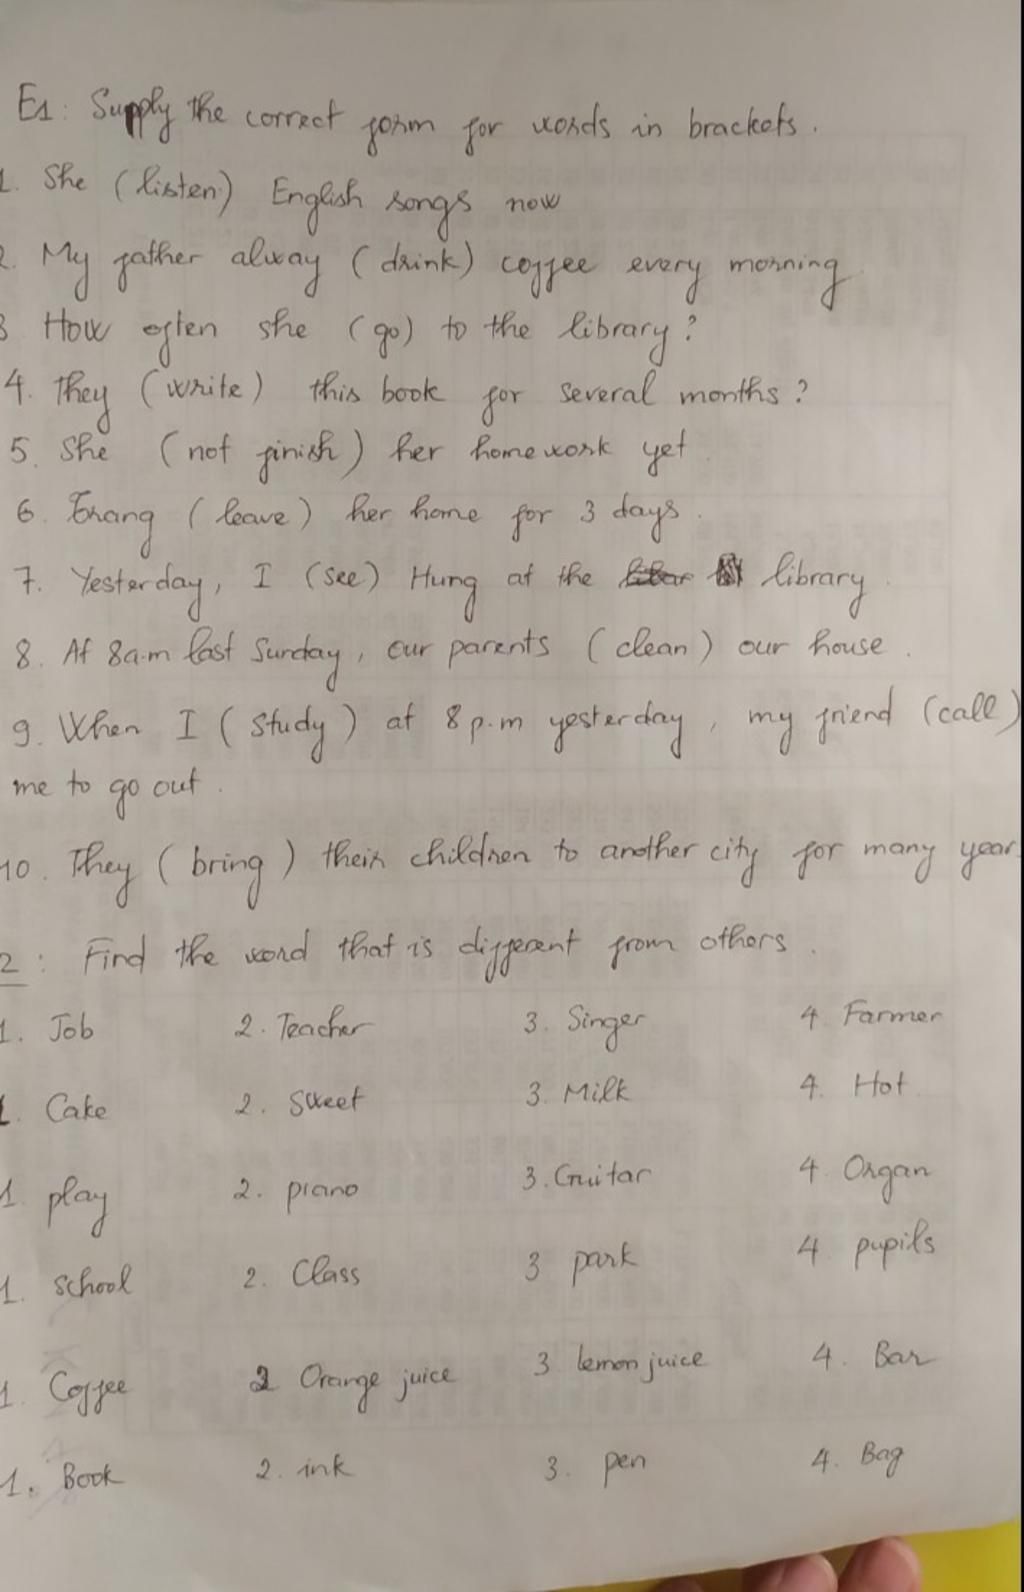 E1: Supply the correct form for words in brackets.
1. She (listen) English songs now
2. My father alway (drink) coffee every morning
3 How often she (go) to the library?
4. They (write) this book for several months?
5. She (not finish) her homework yet.
6. Trang (leave) her home for 3 days.
7. Yesterday, I (see) Hung at the library.
8. At 8a.m last Sunday, our parents (clean) our house.
9. When I (study) at 8 p.m yesterday, my friend (call)
me to go out.
10. They (bring) their children to another city for many year
2: Find the word that is different from others.
1. Job 2. Teacher 3. Singer 4. Farmer
1. Cake 2. Sweet 3. Milk 4. Hot
1. play 2. piano 3. Guitar 4. Organ
1. School 2. Class 3 park 4 pupils
1. Coffee 2 Orange juice 3 lemon juice 4. Bar
1. Book 2. ink 3. pen 4. Bag